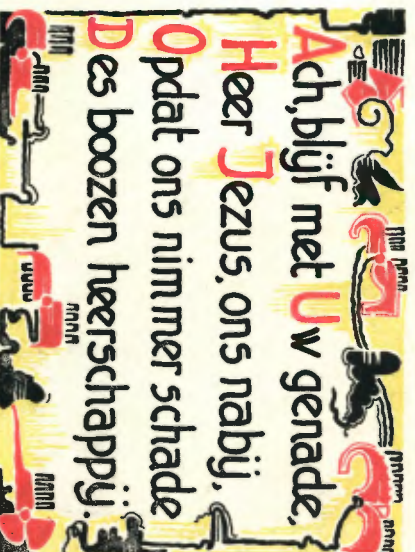 Ach, blijf met Uw genade,
Heer Jezus, ons nabij,
Opdat ons nimmer schade
Des boozen heerschappij.